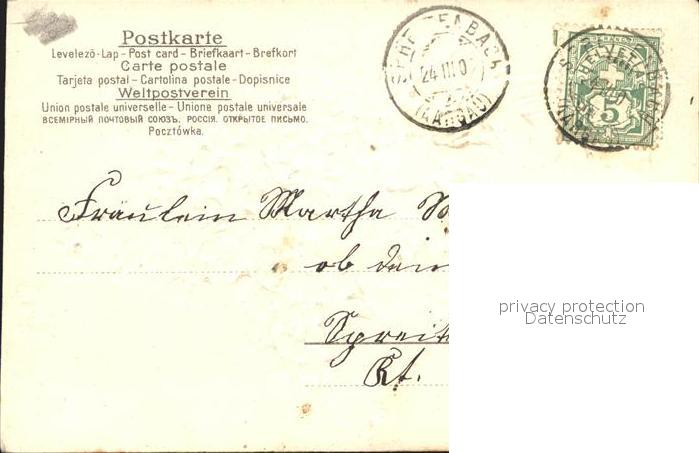 Postkarte
Levelező-Lap - Post card - Briefkaart - Brefkort
Carte postale
Tarjeta postal - Cartolina postale - Dopisnice
Weltpostverein
Union postale universelle - Unione postale universale
ВСЕМІРНЫЙ ПОЧТОВЫЙ СОЮЗЪ. РОССІЯ. ОТКРЫТОЕ ПИСЬМО.
Pocztówka.
24 III 0
(AARGAU)
HELVETIA
5
Fräulein Martha
ob dem
Spreit
Kt.
privacy protection
Datenschutz